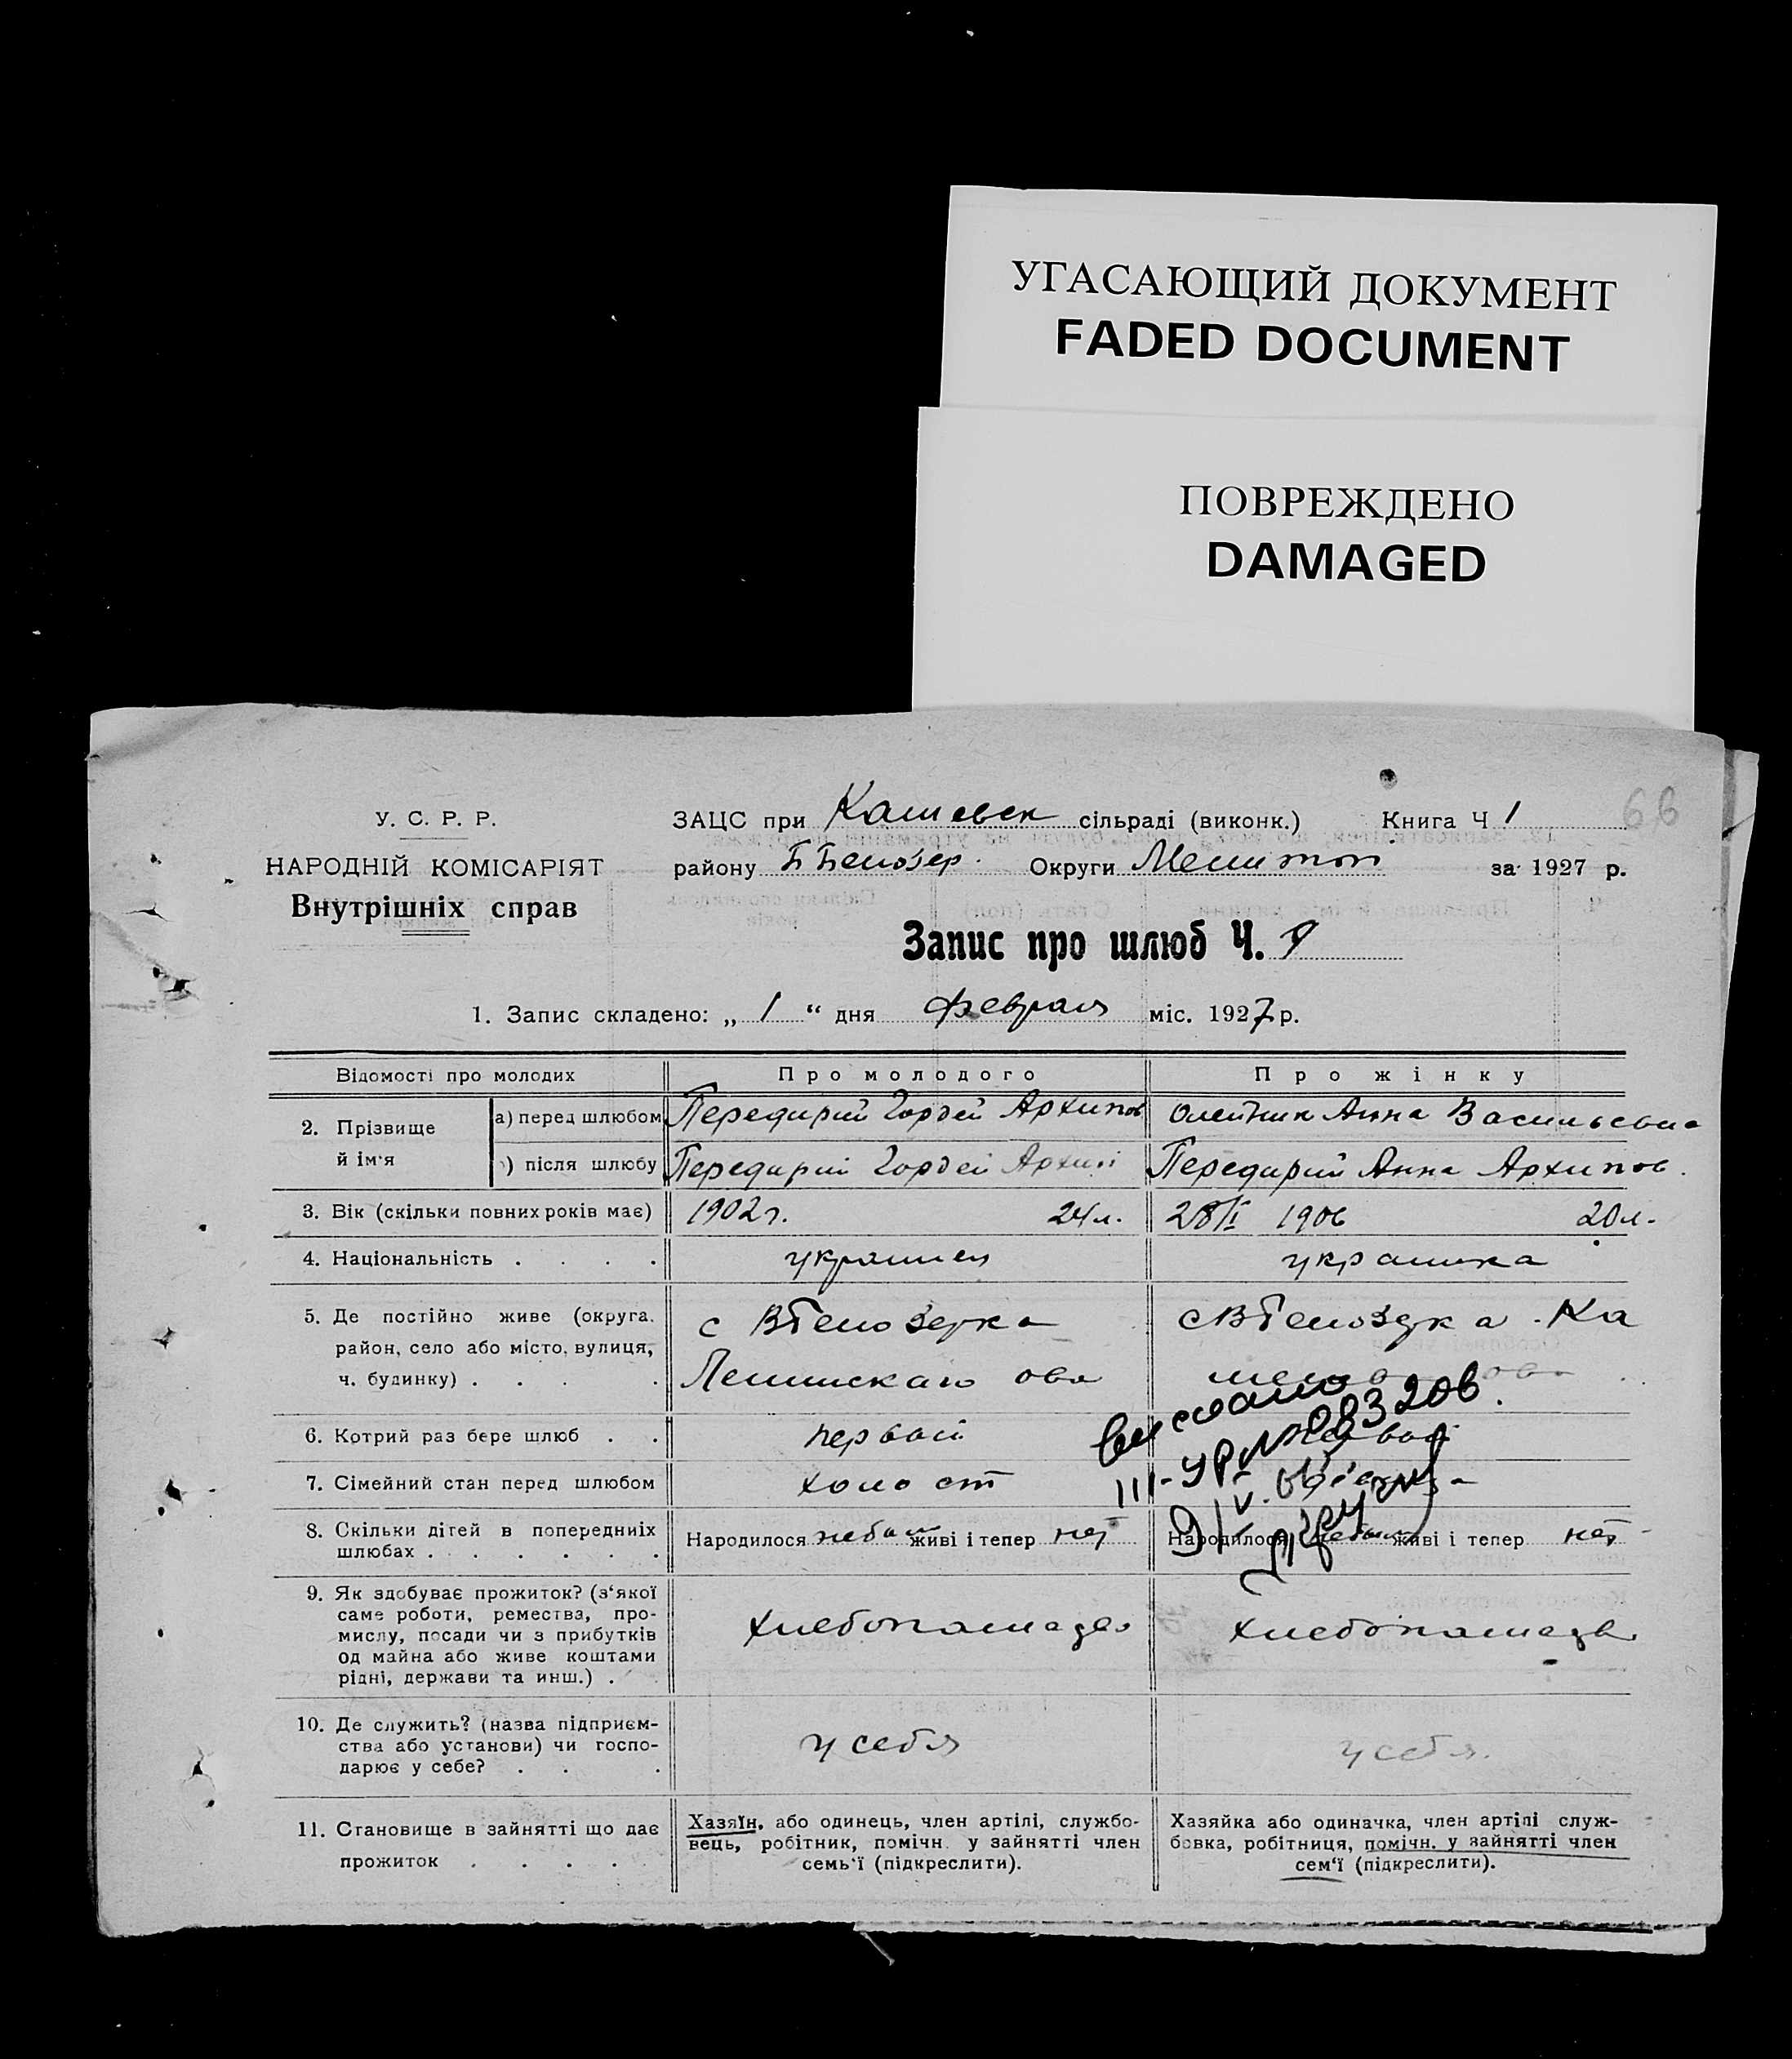 УГАСАЮЩИЙ ДОКУМЕНТ
FADED DOCUMENT
ПОВРЕЖДЕНО
DAMAGED
66
У. С. Р. Р.
НАРОДНІЙ КОМІСАРІЯТ
Внутрішніх справ
ЗАЦС при сільраді (виконк.) Книга Ч 1
району Б Белозер. Округи Мелитоп за 1927 р.
Запис про шлюб Ч.
1. Запис складено: „ 1 “ дня февраля міс. 1927 р.
Відомості про молодих Про молодого Про жінку
2. Прізвище й ім'я
а) перед шлюбом Передирий Гордей Архипов Олейник Анна Васильевна
) після шлюбу Передирий Гордей Архип Передирий Анна Архипов.
3. Вік (скільки повних років має) 1902 г. 24 л. 28/I 1906 20 л.
4. Національність . . . . украинец украинка
5. Де постійно живе (округа, с ВБелозерка с ВБелозерка . Ка
район, село або місто, вулиця, Ленинскаго ова
ч. будинку) . . . .
6. Котрий раз бере шлюб . . первый
7. Сімейний стан перед шлюбом холост
8. Скільки дітей в попередніх
шлюбах . . . . . . Народилося небыл живі і тепер нет Народилося живі і тепер нет
выслано
9. Як здобуває прожиток? (з‘якої
саме роботи, ремества, про-
мислу, посади чи з прибутків хлебопашадев хлебопашадев
од майна або живе коштами
рідні, держави та инш.) .
10. Де служить? (назва підприєм-
ства або установи) чи госпо- у себя у себя.
дарює у себе? . . .
11. Становище в зайнятті що дає
прожиток . . . . .
Хазяїн, або одинець, член артілі, службо-
вець, робітник, помічн. у зайнятті член
семь‘ї (підкреслити).
Хазяйка або одиначка, член артілі служ-
бовка, робітниця, помічн. у зайнятті член
сем‘ї (підкреслити).